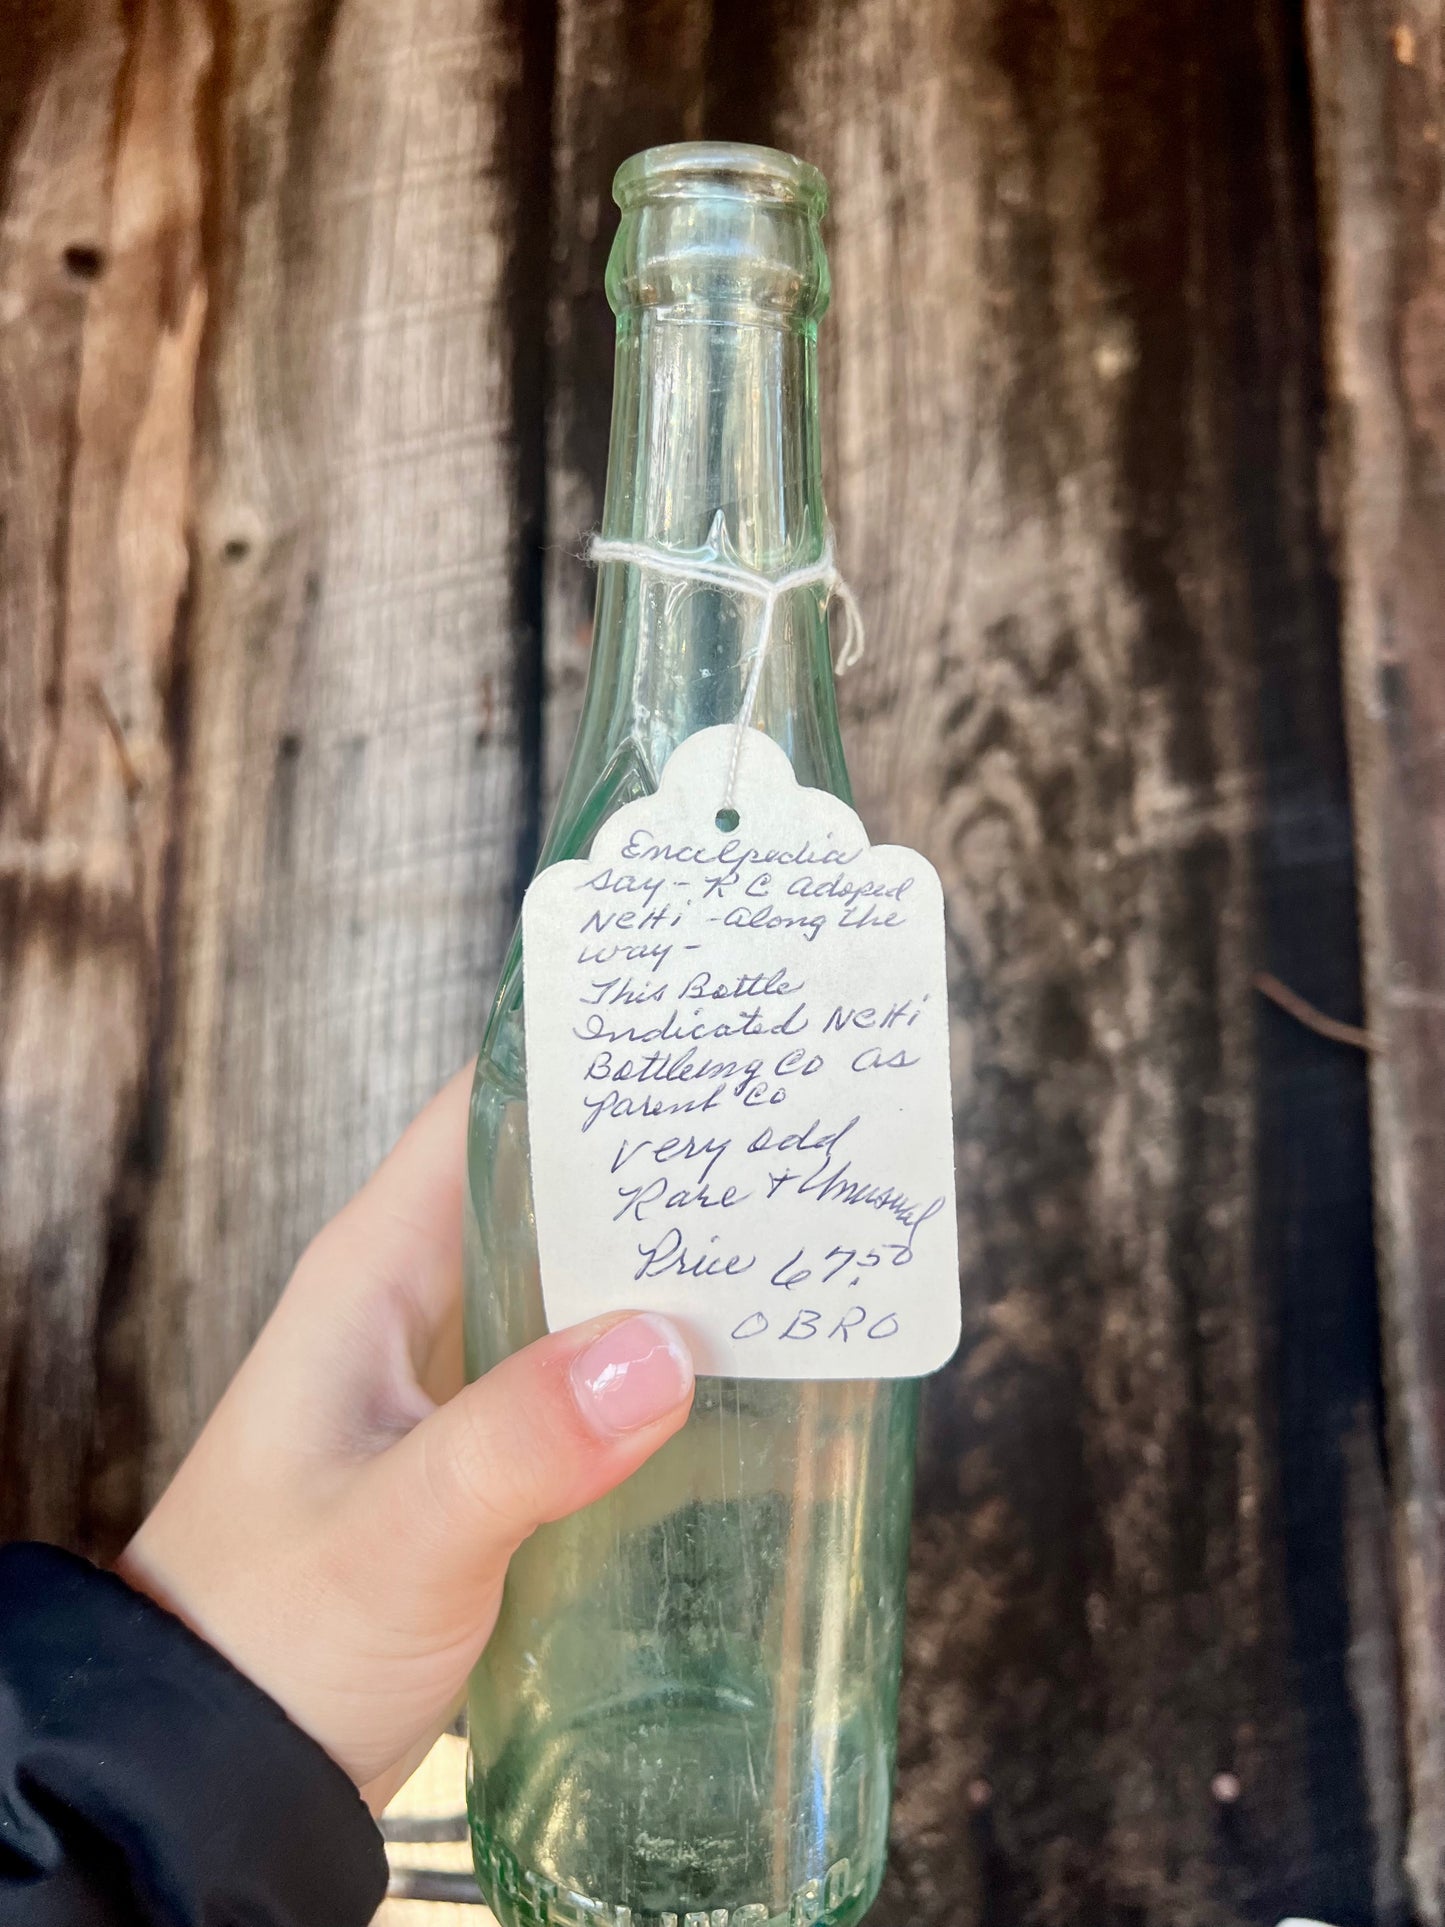 Encilpedia
say - RC adoped
NeHi - along the
way -
This Bottle
Indicated NeHi
Bottleing Co as
Parent Co
Very odd
Rare + Unusual
Price 67.50
OBRO